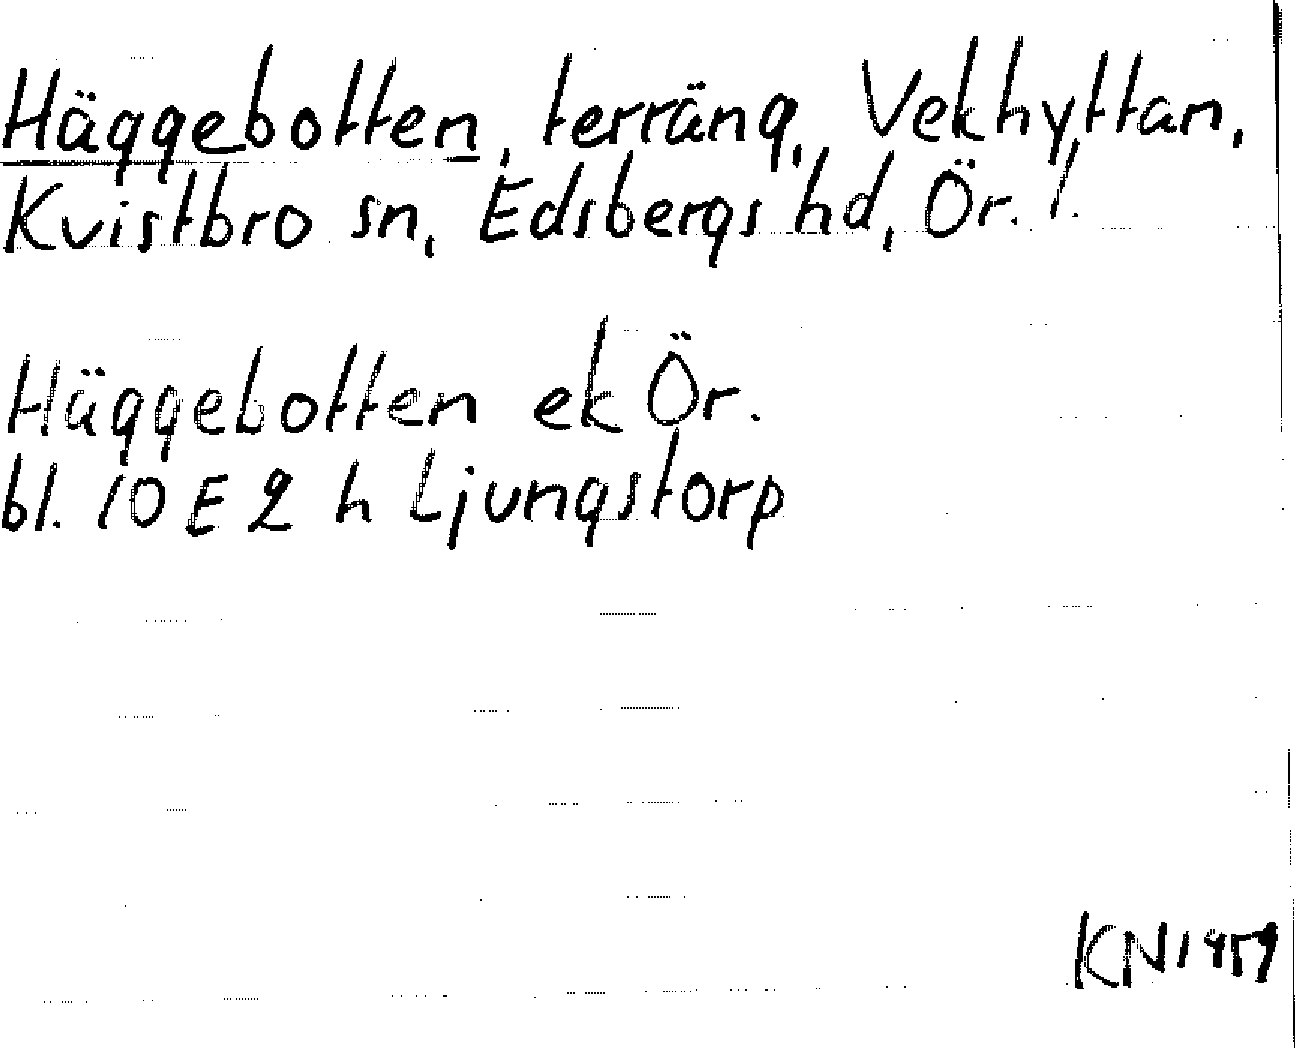 Häggebotten, terräng, Vekhyttan,
Kvistbro sn, Edsbergs hd, Ör. l.
Häggebotten ek Ör.
bl. 10 E 2 h Ljungstorp